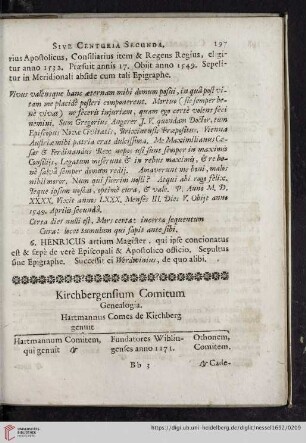 SIVE CENTURIA SECUNDA. 197
rius Apostolicus, Consiliarius item & Regens Regius, eligitur
anno 1532. Præfuit annis 17. Obiit anno 1549. Sepelitur
in Meridionali abside cum tali Epigraphe.
Vivus valensque hanc æternam mihi domum posui, in qua post vitam
me placide posteri componerent. Mirtuo (sic semper beatè
vivas) ne feceris injuriam, quam ego certè volens feci
nemini. Sum Gregorius Angerer J. V. quondam Doctor, tum
Episcopus Novæ Civitatis, Brixinensis Præpositus. Vienna
Austriæ mihi patria erat dulcissima. Me Maximilianus Cæsar
& Ferdinandus Rex nepos usi sunt semper in maximis
Consiliis, Legatum miserunt & in rebus maximis, & re bona
gesta semper domum redii. Amaverunt me boni, malus
nihil moror. Num qui fuerim audis? Itaque abi rogo felix.
Neque ipsum nostra, optimè cura, & vale. P. Anni M. D.
XXXX. Vixit annos LXXX. Menses III. Dies V. Obiit anno
1549. Aprilis secunda.
Certa dies nulli est, Mors certa: incerta sequentum
Cura: locet tumulum qui sapit ante sibi.
6. HENRICUS artium Magister, qui ipse concionatus
est & sæpè de verè Episcopali & Apostolico officio, Sepultus
sine Epigraphe. Successit ei Wernhinus, de quo alibi.
Kirchbergensium Comitum
Genealogia.
Hartmannus Comes de Kirchberg
genuit
Hartmannum Comitem, Fundatores Wiblin- Othonem,
qui genuit & genses anno 1271. Comitem.
Bb 3 & Cade-
UNIVERSITÄTS-BIBLIOTHEK HEIDELBERG
https://digi.ub.uni-heidelberg.de/diglit/nessel1692/0269